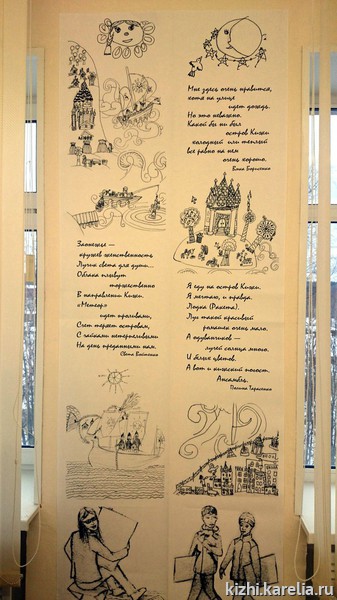 Мне здесь очень нравится,
хотя на улице
идет дождь.
Но это неважно.
Какой бы ни был
остров Кижи
холодный или теплый
все равно на нем
очень хорошо.
Ваня Борисенко
Заонежье —
кружев женственность
Лучик света для души...
Облака плывут
торжественно
В направлении Кижи.
«Метеор»
идет проливами,
Счет теряет островам,
С чайками нетерпеливыми
На день преданными нам.
Света Войтенко
Я еду на остров Кижи.
Я мечтаю, и правда.
Лодка (Ракета).
Луг такой красивый
ромашек очень мало.
А одуванчиков —
лучей солнца много.
И белых цветов.
А вот и кижский погост.
Ансамбль.
Полина Тарасенко
kizhi.karelia.ru